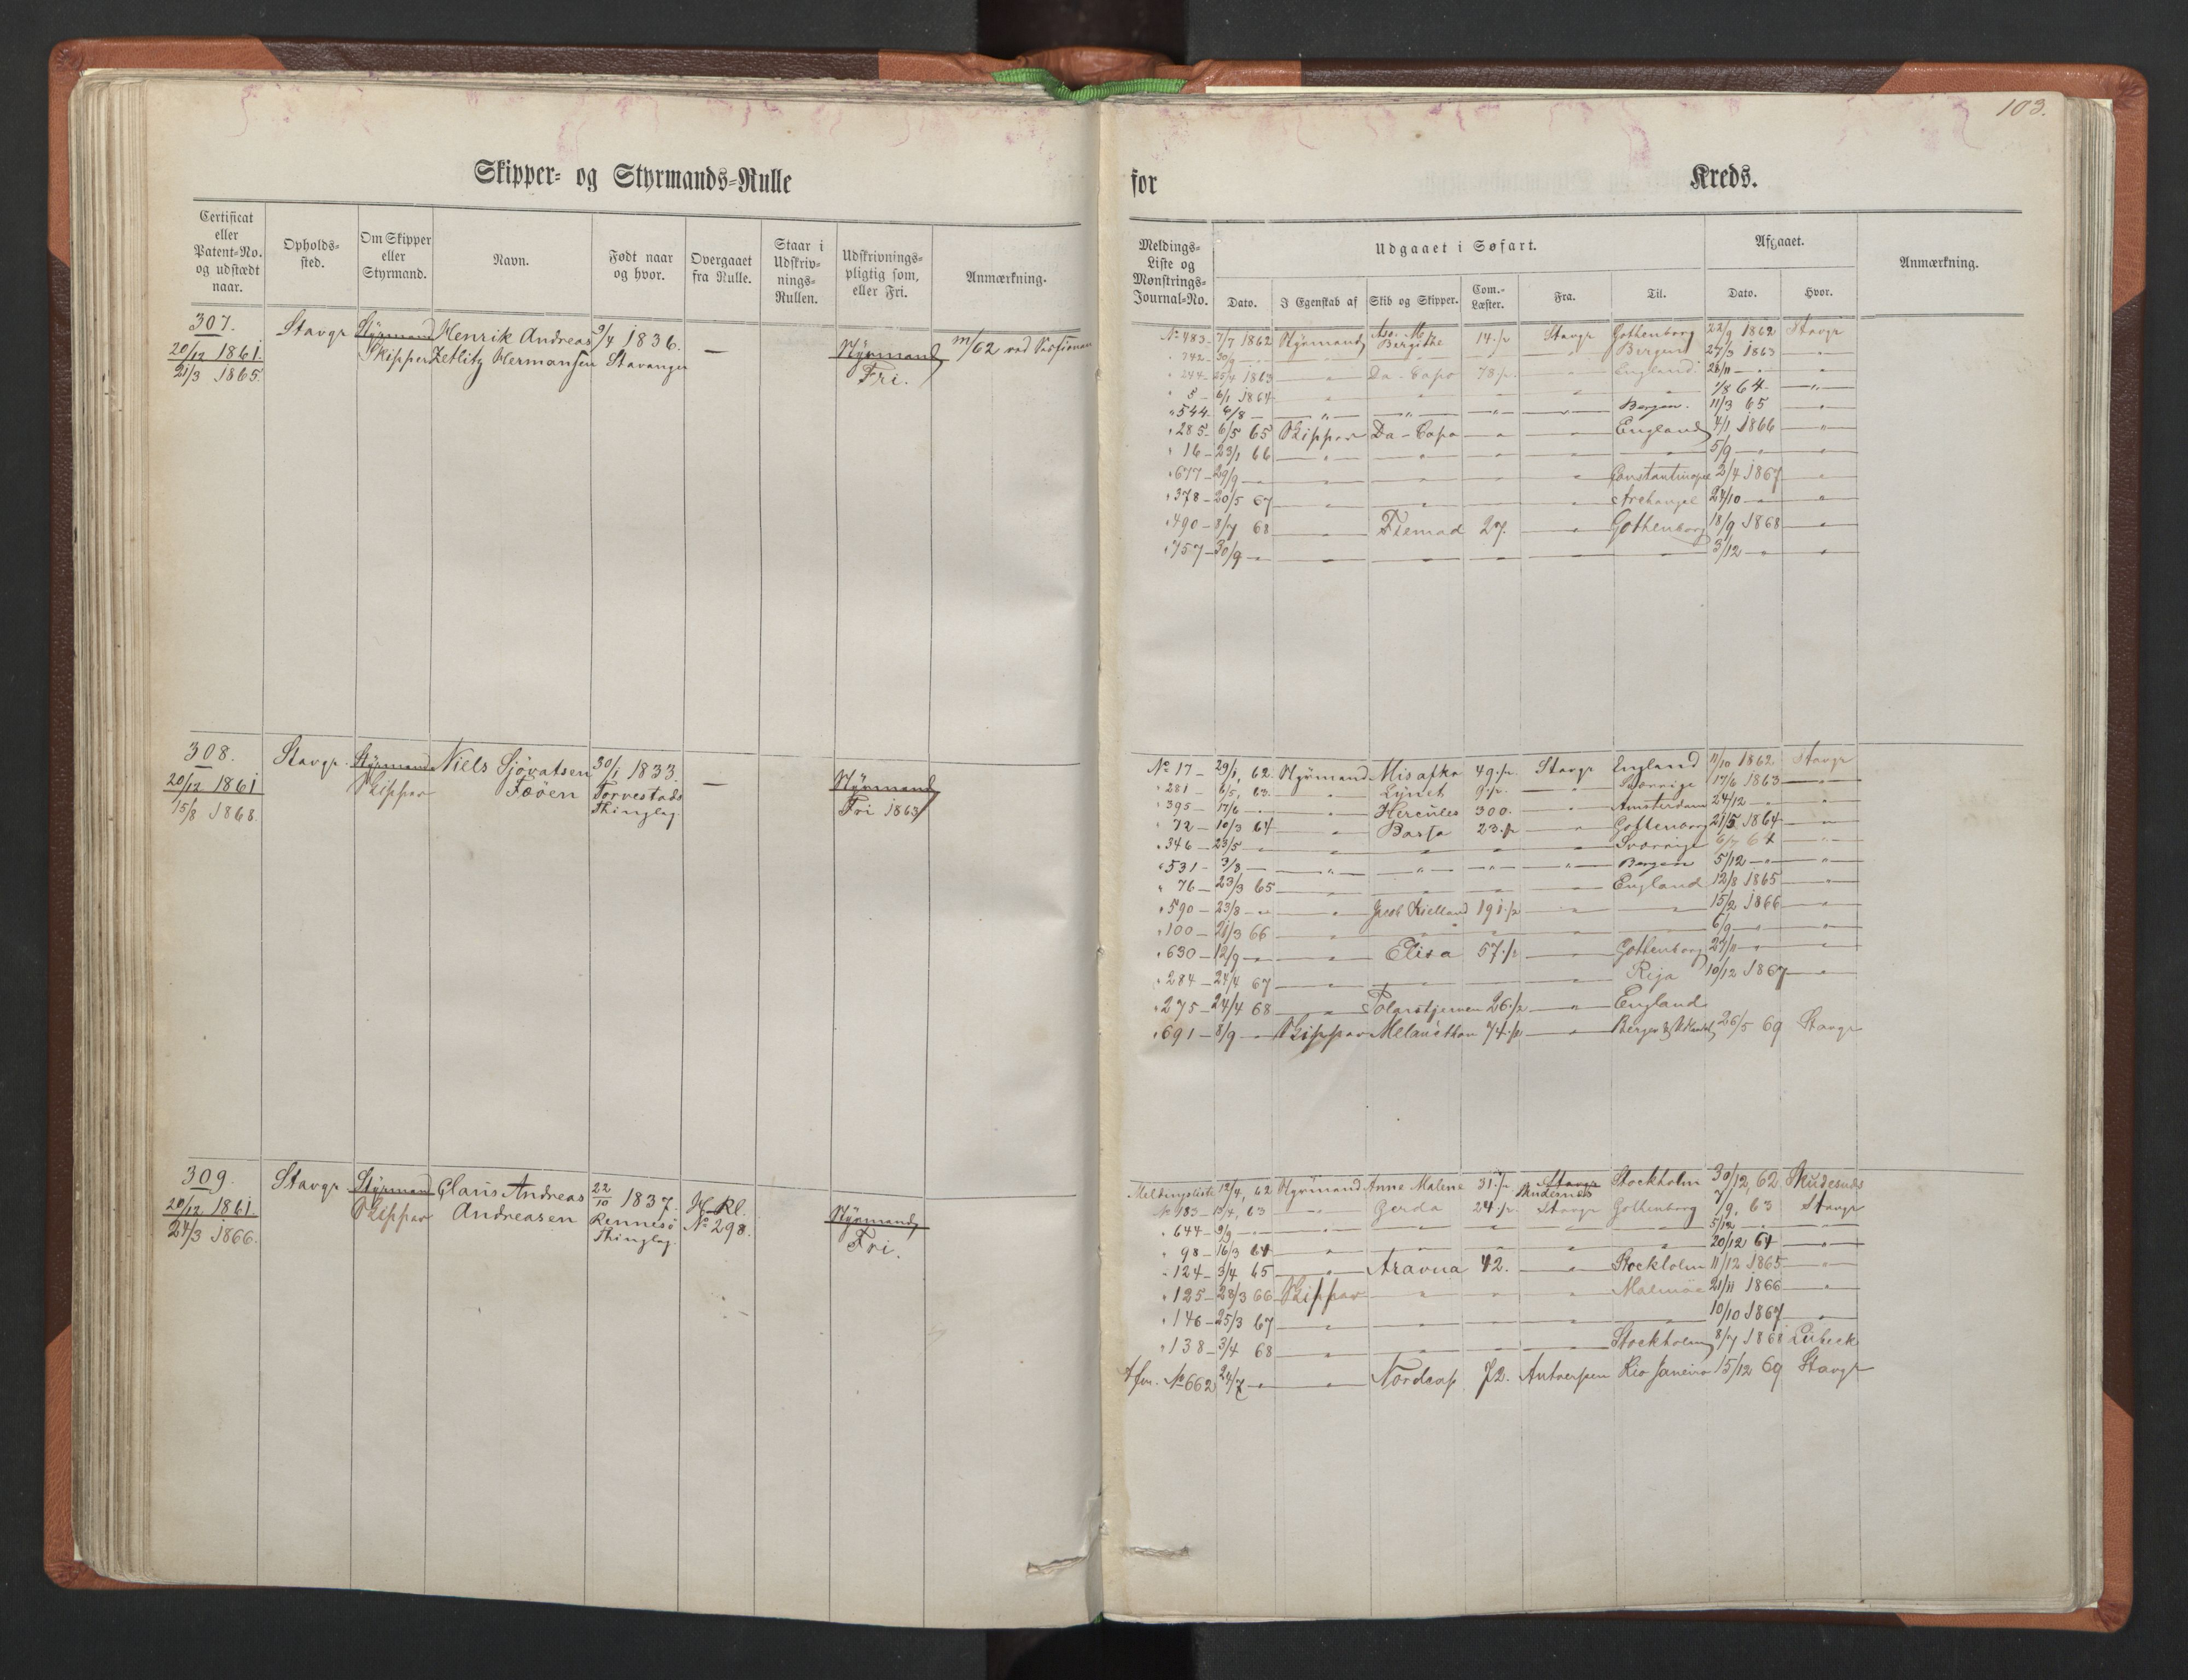 103.
Skipper- og Styrmands-Rulle for Kreds.
Certificat eller Patent-No. og udstædt naar.
Opholds-sted.
Om Skipper eller Styrmand.
Navn.
Født naar og hvor.
Overgaaet fra Rulle.
Staar i Udskriv-nings-Rullen.
Udskrivnings-pligtig som, eller Fri.
Anmærkning.
Meldings-Liste og Mønstrings-Journal-No.
Udgaaet i Søfart.
Dato.
I Egenskab af
Skib og Skipper.
Com.-Læster.
Fra.
Til.
Afgaaet.
Dato.
Hvor.
Anmærkning.
307. Stavgr Styrmand Henrik Andreas 9/4 1836. — Styrmand
20/12 1861. Skipper Zetlitz Hermansen Stavanger Fri.
21/3 1865.
No 483 - 7/7 1862 Styrmand Bergithe 14 Stavgr Gothenborg 22/9 1862 Stavgr
" 742 - 30/9 — Bergen 27/3 1863 "
" 244 - 25/4 1863 — " Da-Capo 78 " England 28/11 "
" 5 - 6/1 1864 " " " " " 1/8 64 "
" 544 - 6/8 — " " " " Bergen. 11/3 65 "
" 285 - 6/5 65 Skipper Da-Capo " " England 4/1 1866 "
" 16 - 23/1 66 " " " " " 5/9 "
" 677 - 29/9 — " " " " Constantinopel 2/4 1867 "
" 378 - 20/5 67 " " " " Archangel 24/10 "
" 490 - 8/7 68 " 27. " Gothenborg 18/9 1868 "
" 757 - 30/9 " " " " " " 3/12 " "
308. Stavgr. Styrmand Niels Sjövatsen 30/1 1833. — Styrmand
20/12 1861 Skipper Föven Torvestads Fri 1863
15/8 1868. Thinglag.
No 17 - 29/1, 62. Styrmand 49 Stavgr England 11/10 1862 Stavgr
" 281 - 6/5, 63. " Lynet 9 " Sverrige 17/6 1863 "
" 395 - 17/6 - " Hercules 300. " Amsterdam 24/12 "
" 72 - 10/3 64 " 23 " Gothenborg 21/5 1864 "
" 346 - 23/5 " " " " Sverrige 6/7 64 "
" 531 - 3/8 " " " " Bergen 5/12 "
" 76 - 23/3 65 " " " England 12/8 1865 "
" 590 - 23/8 " " Jacob Kielland 191 " " 15/2 1866 "
" 100 - 21/3 66 " " " " " 6/9 "
" 630 - 12/9 " " Elisa 57 " Gothenborg 27/11 "
" 284 - 24/4 67 " " " " Riga 10/12 1867 "
" 275 - 24/4 68 " Polarstjernen 26 " England
" 691 - 8/9 " Skipper Melancthon 74 " Bergen 26/5 69 Stavgr
309. Stavgr Styrmand Claus Andreas 22/10 1837. Styrmand
20/12 1861. Skipper Andreasen Rennesö No 298. Fri.
24/3 1866. Thinglag.
Meldingsliste 12/4, 62 Styrmand Anne Malene 31 Stavgr Skudesnes Stockholm 30/12, 62 Skudesnes
No 183 - 13/4, 63 " Gerda 24 Stavgr Gothenborg 7/9, 63 Stavgr
" 644 - 9/9 - " " " " 5/12 "
" 98 - 16/3 64 " " " " " 20/12 64 "
" 124 - 3/4 65 " 42. " Stockholm 11/12 1865 "
" 125 - 28/3 66 Skipper " " " Malmöe 21/11 1866 "
" 146 - 25/3 67 " " " " " 10/10 1867 "
" 138 - 3/4 68 " " " " Stockholm 8/7 1868 Lübeck
No 662 24/7 " " Nordcap 72. Antwerpen Rio Janeiro 15/12 69 Stavgr